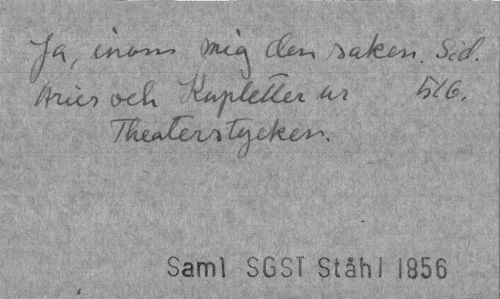 Ja, inom mig den saken. Sid.
Arier och Kupletter ur 516.
Theaterstycken.
Saml SGST Ståhl 1856